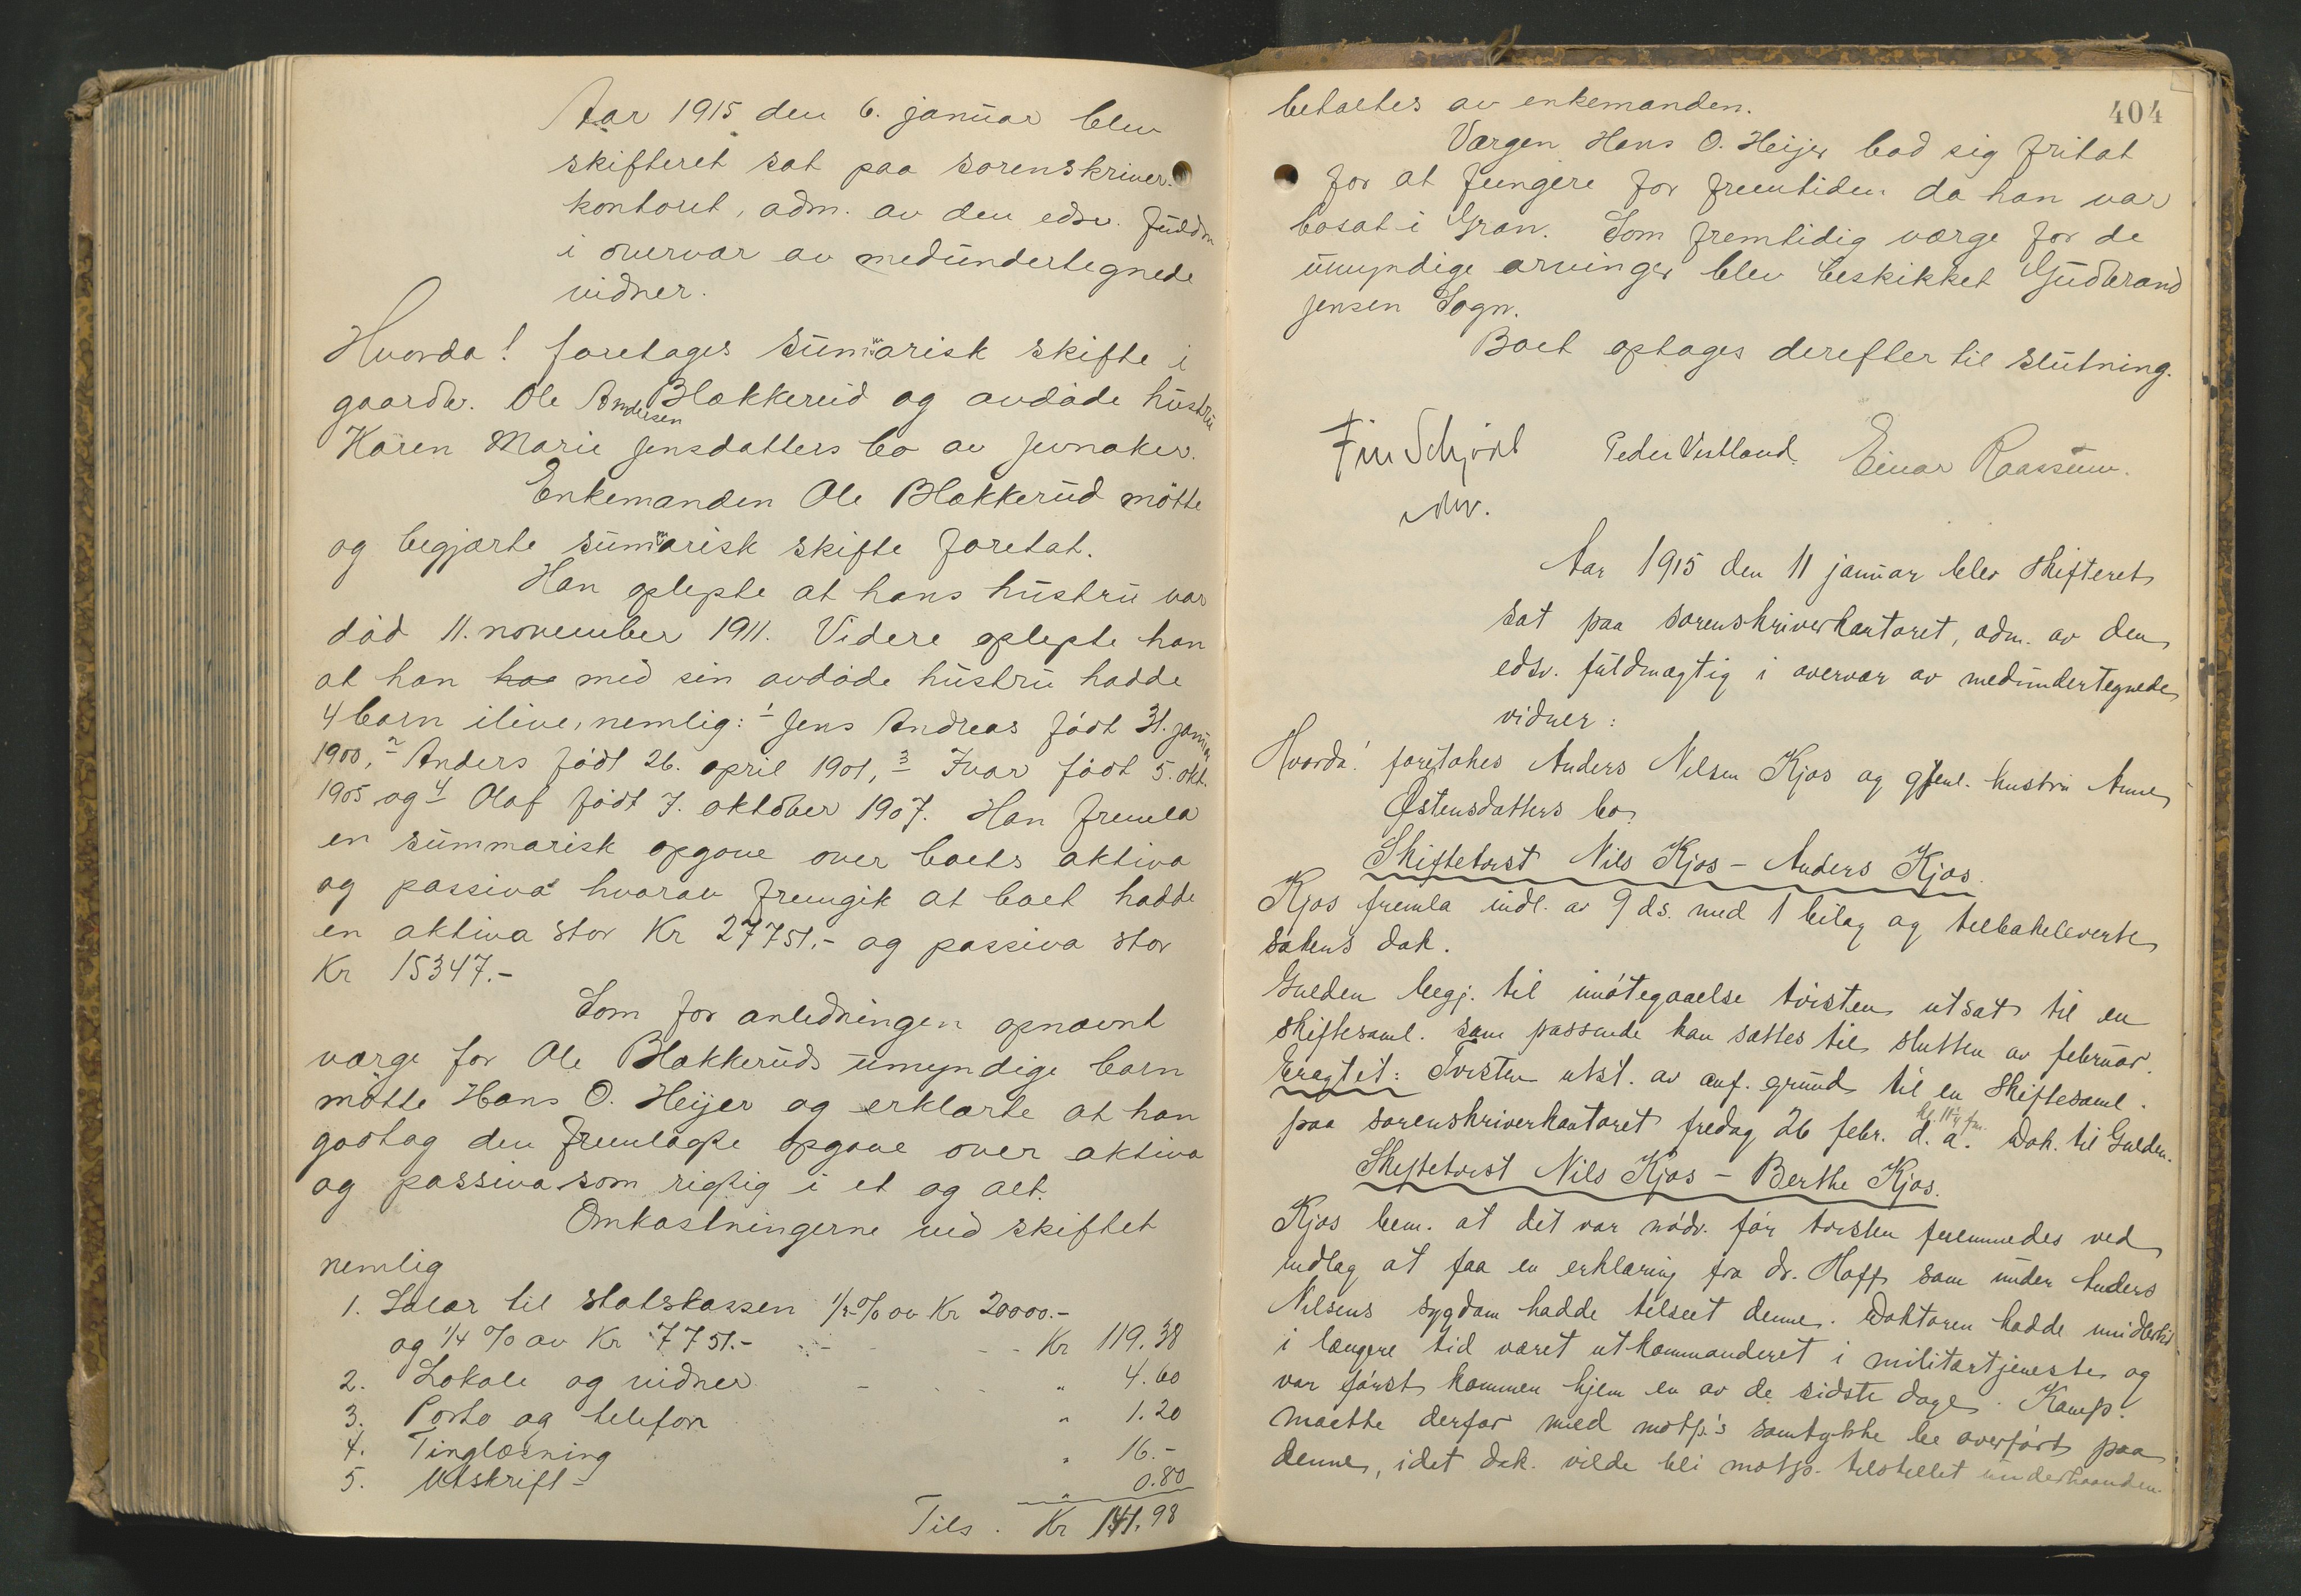 Aar 1915 den 6. januar blev
skifteret sat paa sorenskriver-
kontoret, adm. av den edsv. fuldm
i overvær av medundertegnede
vidner.
Hvorda! foretages summarisk skifte i
gaardbr. Ole Andersen Blakkerud og avdøde hustru
Karen Marie Jensdatters bo av Jevnaker.
Enkemanden Ole Blakkerud møtte
og begjærte summarisk skifte foretat.
Han oplyste at hans hustru var
død 11. november 1911. Videre oplyste han
at han har med sin avdøde hustru hadde
4 barn ilive, nemlig: 1 Jens Andreas født 31. januar
1900, 2 Anders født 26. april 1901, 3 Ivar født 5. okt.
1905 og 4 Olaf født 7. oktober 1907. Han fremla
en summarisk opgave over boets aktiva
og passiva hvorav fremgik at boet hadde
en aktiva stor Kr 27751.- og passiva stor
Kr 15347.-
Som for anledningen opnævnt
værge for Ole Blakkeruds umyndige barn
møtte Hans O. Heijer og erklærte at han
godtog den fremlagte opgave over aktiva
og passiva som rigtig i et og alt.
Omkostningerne ved skiftet
nemlig
1. Salær til statskassen 1/2 % av Kr 20000.-
og 1/4 % av Kr 7751.- - - - Kr 119.38
2. Lokale og vidner - - - " 4.60
3. Porto og telefon " 1.20
4. Tinglæsning " 16.-
5. Utskrift - " 0.80
Tils. Kr 141.98
404
betaltes av enkemanden.
Værgen Hans O. Heijer bad sig fritat
for at fungere for fremtiden da han var
bosat i Gran. Som fremtidig værge for de
umyndige arvinger blev beskikket Gudbrand
Jensen Sogn.
Boet optages derefter til slutning.
Fin Schjøtt Peder Vestland. Einar Raassum.
edsv.
Aar 1915 den 11 januar blev skifteret
sat paa sorenskriverkontoret, adm. av den
edsv. fuldmægtig i overvær av medundertegnede
vidner:
Hvorda! foretokes Anders Nilsen Kjos og gjenl. hustru Anne
Østensdatters bo.
Skiftetvist Nils Kjos - Anders Kjos.
Kjos fremla indl. av 9 ds. med 1 bilag og tilbakeleverte
sakens dok.
Gulden begj. til imøtegaaelse tvisten utsat til en
skiftesaml. som passende kan sættes til slutten av februar.
Eragtet: Tvisten utst. av anf. grund til en skiftesaml.
paa sorenskriverkontoret fredag 26 febr. d. a. kl. 11 1/2 fm. Dok. til Gulden.
Skiftetvist Nils Kjos - Berthe Kjos.
Kjos bem. at det var nødv. før tvisten fremmedes ved
indlæg at faa en erklæring fra dr. Hoff som under Anders
Nilsens sygdom hadde tilseet denne. Doktoren hadde imidlertid
i længere tid været utkommanderet i militærtjeneste og
var først kommen hjem en av de sidste dage. Kamp.
maatte derfor med motp.'s samtykke be overført paa
denne, idet dok. vilde bli motp. tilstellet underhaanden.